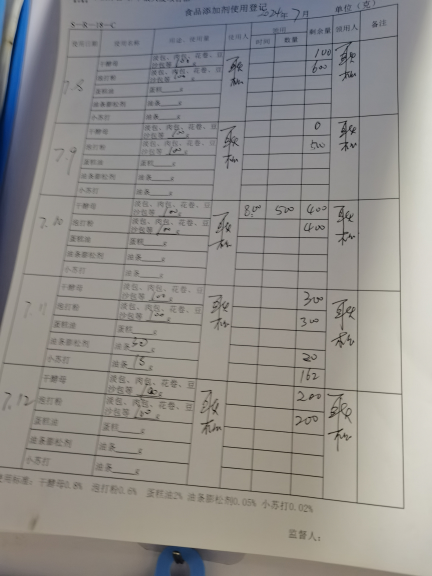 食品添加剂使用登记
2024年7月 单位（克）
使用日期 使用名称 用途、使用量 使用人 领用 剩余量 领用人 备注
时间 数量
7.8
干酵母 馒包、肉包、花卷、豆沙包等100g 100
泡打粉 馒包、肉包、花卷、豆沙包等100g 600
蛋糕油 蛋糕___g
油条膨松剂 油条___g
小苏打 油条___g
7.9
干酵母 馒包、肉包、花卷、豆沙包等100g 0
泡打粉 馒包、肉包、花卷、豆沙包等100g 500
蛋糕油 蛋糕___g
油条膨松剂 油条___g
小苏打 油条___g
7.10
干酵母 馒包、肉包、花卷、豆沙包等100g 8:00 500 400
泡打粉 馒包、肉包、花卷、豆沙包等100g 400
蛋糕油 蛋糕___g
油条膨松剂 油条___g
小苏打 油条___g
7.11
干酵母 馒包、肉包、花卷、豆沙包等100g 300
泡打粉 馒包、肉包、花卷、豆沙包等100g 300
蛋糕油 蛋糕___g
油条膨松剂 油条30g 20
小苏打 油条15g 162
7.12
干酵母 馒包、肉包、花卷、豆沙包等100g 200
泡打粉 馒包、肉包、花卷、豆沙包等100g 200
蛋糕油 蛋糕___g
油条膨松剂 油条___g
小苏打 油条___g
使用标准：干酵母0.8% 泡打粉0.8% 蛋糕油2% 油条膨松剂0.05% 小苏打0.02%
监督人：